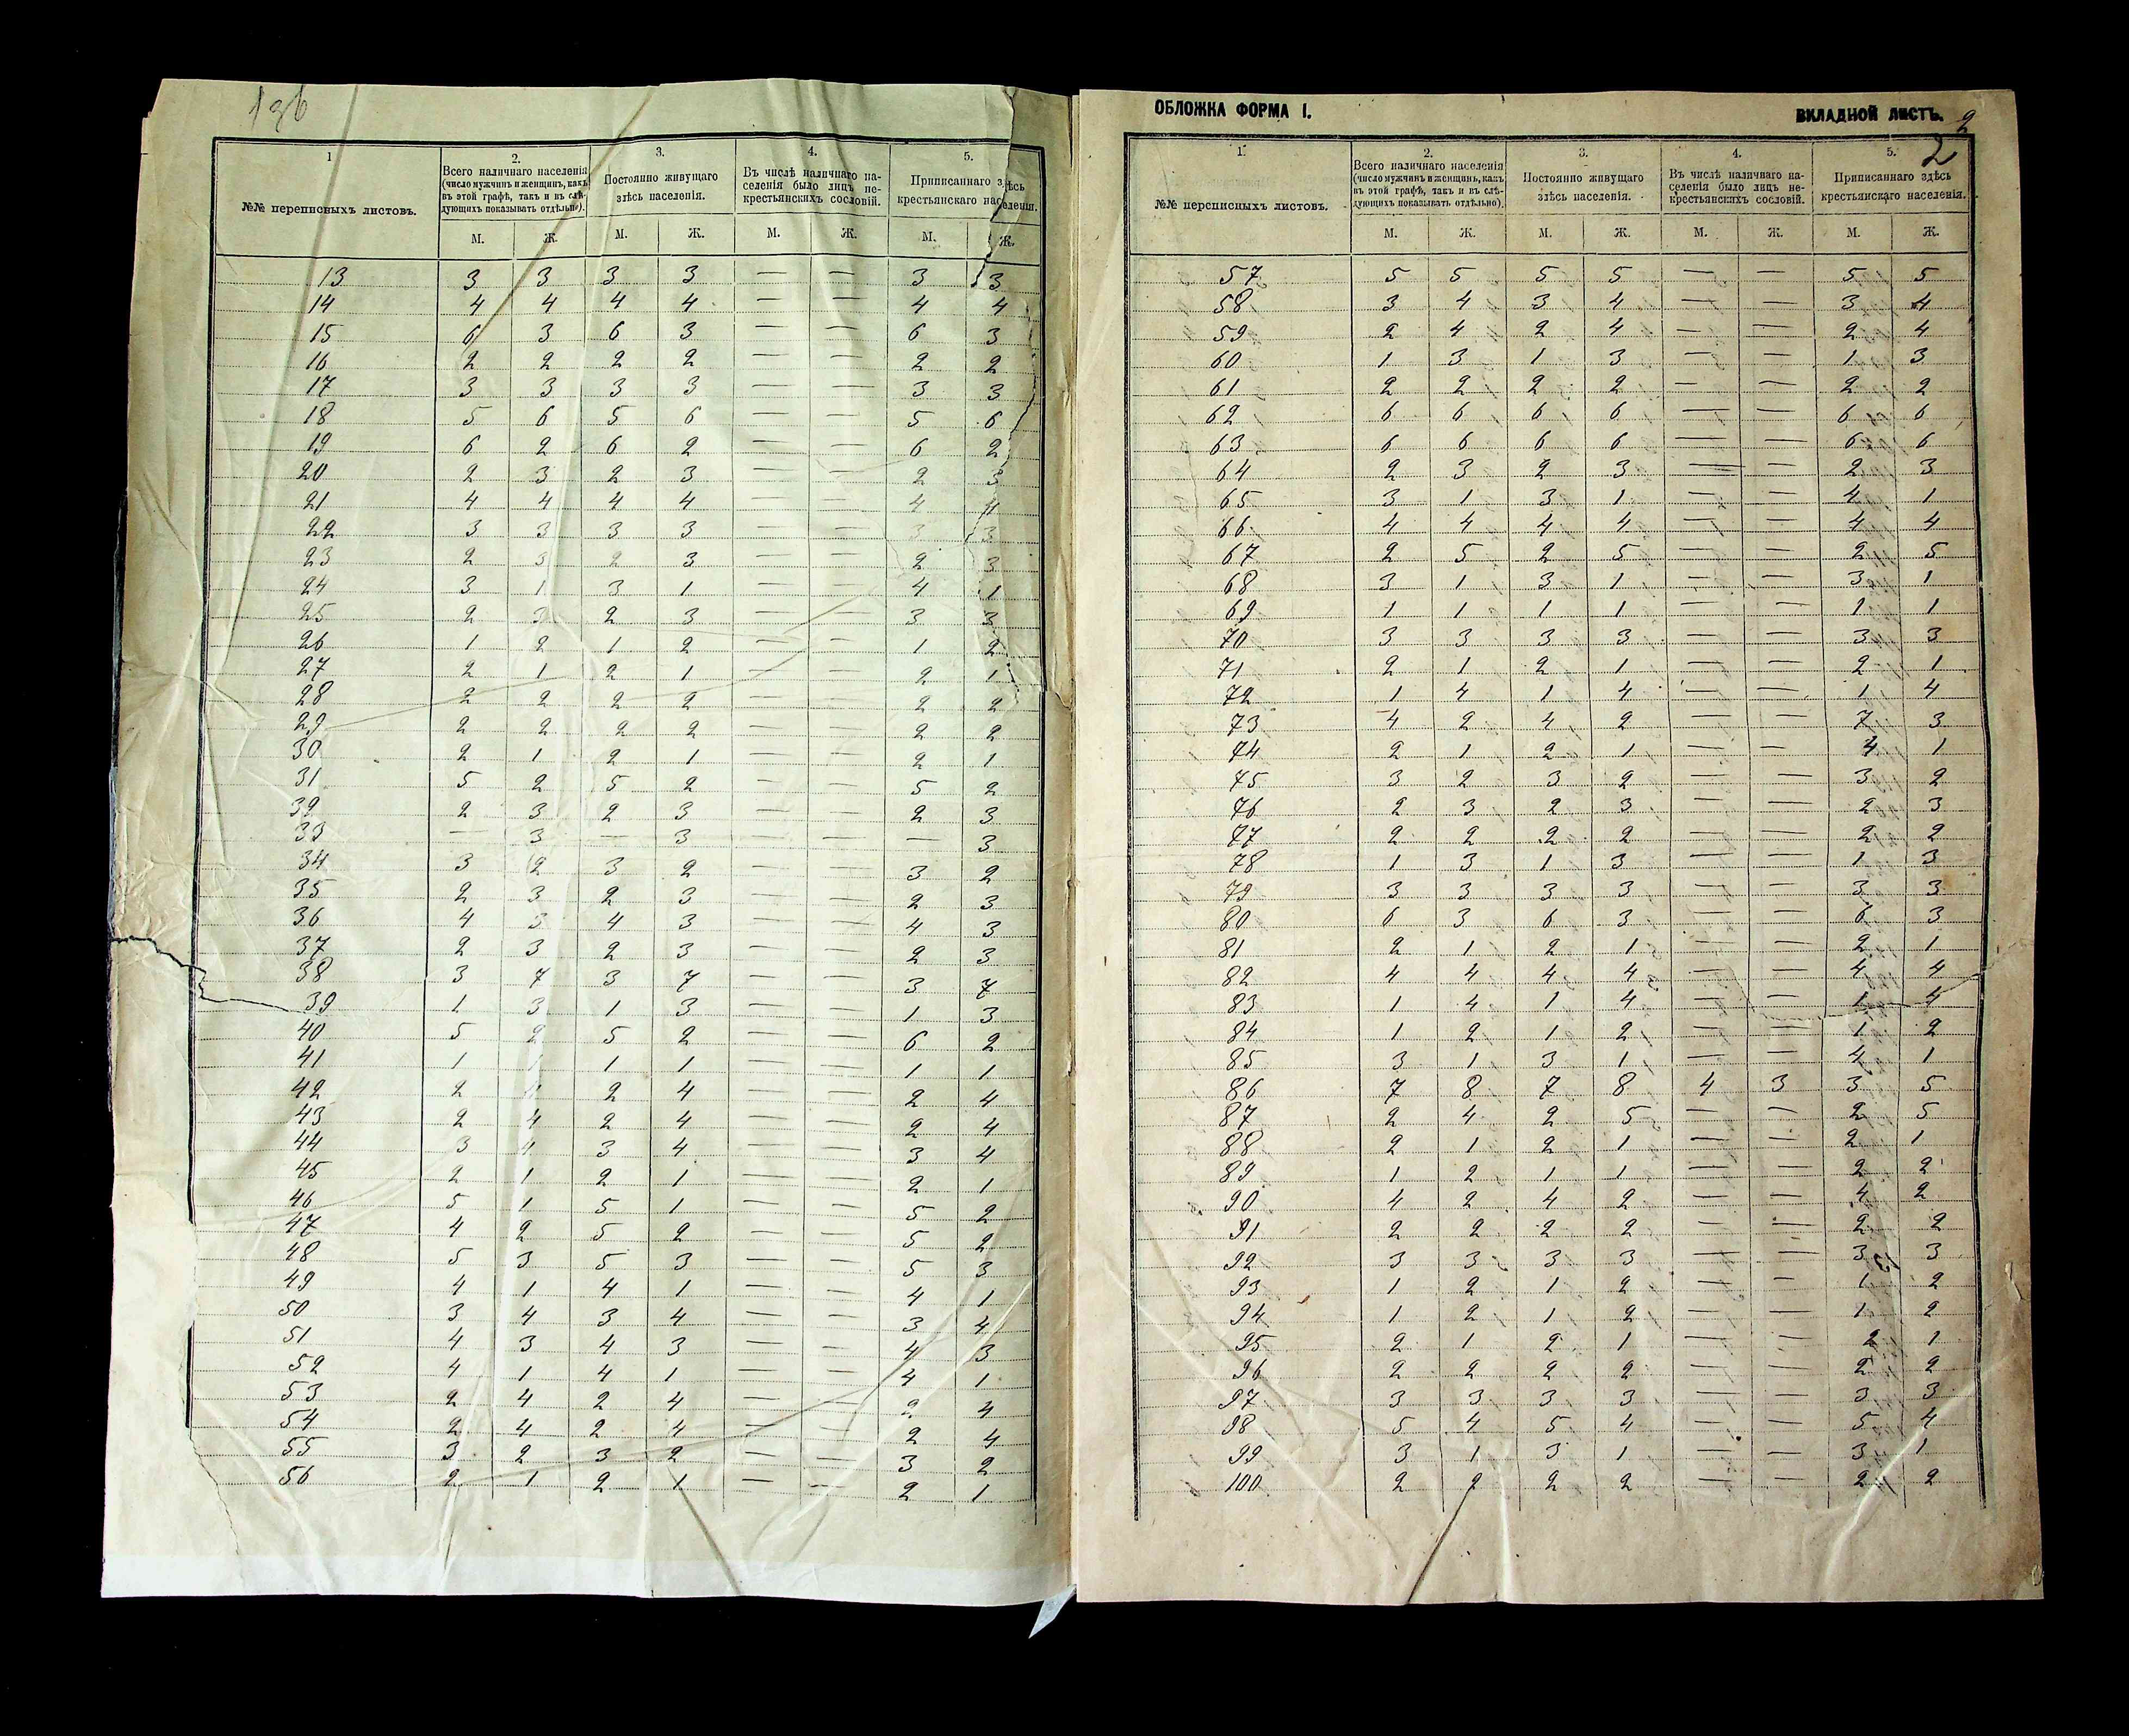 136
1
2.
3.
4.
5.
№№ переписныхъ листовъ.
Всего наличнаго населенія (число мужчинъ и женщинъ, какъ въ этой графѣ, такъ и въ слѣдующихъ показывать отдѣльно).
Постоянно живущаго здѣсь населенія.
Въ числѣ наличнаго населенія было лицъ некрестьянскихъ сословій.
Приписаннаго здѣсь крестьянскаго населенія.
М. Ж. М. Ж. М. Ж. М. Ж.
13 3 3 3 3 — — 3 3
14 4 4 4 4 — — 4 4
15 6 3 6 3 — — 6 3
16 2 2 2 2 — — 2 2
17 3 3 3 3 — — 3 3
18 5 6 5 6 — — 5 6
19 6 2 6 2 — — 6 2
20 2 3 2 3 — — 2 3
21 4 4 4 4 — — 4 4
22 3 3 3 3 — — 3 3
23 2 3 2 3 — — 2 3
24 3 1 3 1 — — 4 1
25 2 3 2 3 — — 3 3
26 1 2 1 2 — — 1 2
27 2 1 2 1 — — 2 1
28 2 2 2 2 — — 2 2
29 2 2 2 2 — — 2 2
30 2 1 2 1 — — 2 1
31 5 2 5 2 — — 5 2
32 2 3 2 3 — — 2 3
33 — 3 — 3 — — — 3
34 3 2 3 2 — — 3 2
35 2 3 2 3 — — 2 3
36 4 3 4 3 — — 4 3
37 2 3 2 3 — — 2 3
38 3 7 3 7 — — 3 7
39 1 3 1 3 — — 1 3
40 5 2 5 2 — — 6 2
41 1 1 1 1 — — 1 1
42 2 2 4 — — 2 4
43 2 4 2 4 — — 2 4
44 3 4 3 4 — — 3 4
45 2 1 2 1 — — 2 1
46 5 1 5 1 — — 5 2
47 4 2 5 2 — — 5 2
48 5 3 5 3 — — 5 3
49 4 1 4 1 — — 4 1
50 3 4 3 4 — — 3 4
51 4 3 4 3 — — 4 3
52 4 1 4 1 — — 4 1
53 2 4 2 4 — — 2 4
54 2 4 2 4 — — 2 4
55 3 2 3 2 — — 3 2
56 2 1 2 1 — — 2 1
ОБЛОЖКА ФОРМА I.
ВКЛАДНОЙ ЛИСТЪ.
2
2
1.
2.
3.
4.
5.
№№ переписныхъ листовъ.
Всего наличнаго населенія (число мужчинъ и женщинъ, какъ въ этой графѣ, такъ и въ слѣдующихъ показывать отдѣльно).
Постоянно живущаго здѣсь населенія.
Въ числѣ наличнаго населенія было лицъ некрестьянскихъ сословій.
Приписаннаго здѣсь крестьянскаго населенія.
М. Ж. М. Ж. М. Ж. М. Ж.
57 5 5 5 5 — — 5 5
58 3 4 3 4 — — 3 4
59 2 4 2 4 — — 2 4
60 1 3 1 3 — — 1 3
61 2 2 2 2 — — 2 2
62 6 6 6 6 — — 6 6
63 6 6 6 6 — — 6 6
64 2 3 2 3 — — 2 3
65 3 1 3 1 — — 4 1
66 4 4 4 4 — — 4 4
67 2 5 2 5 — — 2 5
68 3 1 3 1 — — 3 1
69 1 1 1 1 — — 1 1
70 3 3 3 3 — — 3 3
71 2 1 2 1 — — 2 1
72 1 4 1 4 — — 1 4
73 4 2 4 2 — — 7 3
74 2 1 2 1 — — 1
75 3 2 3 2 — — 3 2
76 2 3 2 3 — — 2 3
77 2 2 2 2 — — 2 2
78 1 3 1 3 — — 1 3
79 3 3 3 3 — — 3 3
80 6 3 6 3 — — 6 3
81 2 1 2 1 — — 2 1
82 4 4 4 4 — — 4 4
83 1 4 1 4 — — 1 4
84 1 2 1 2 — — 1 2
85 3 1 3 1 — — 4 1
86 7 8 7 8 4 3 3 5
87 2 4 2 5 — — 2 5
88 2 1 2 1 — — 2 1
89 1 2 1 1 — — 2 2
90 4 2 4 2 — — 4 2
91 2 2 2 2 — — 2 2
92 3 3 3 3 — — 3 3
93 1 2 1 2 — — 1 2
94 1 2 1 2 — — 1 2
95 2 1 2 1 — — 2 1
96 2 2 2 2 — — 2 2
97 3 3 3 3 — — 3 3
98 5 4 5 4 — — 5 4
99 3 1 3 1 — — 3 1
100 2 2 2 2 — — 2 2